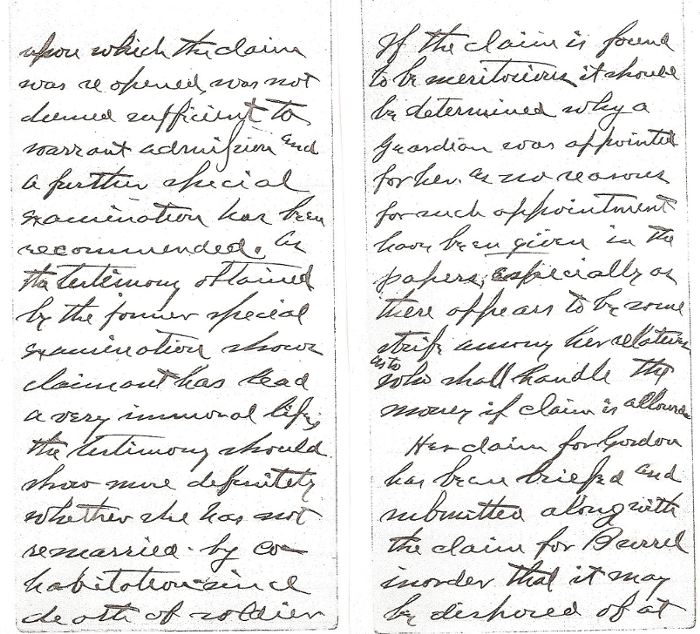 upon which the claim
was reopened, was not
deemed sufficient to
warrant admission and
a further special
examination has been
recommended. As
the testimony obtained
by the former special
examination shows
claimant has lead
a very immoral life,
the testimony should
show more definitely
whether she has not
remarried - by co-
habitation - since
death of soldier
If the claim is found
to be meritorious it should
be determined why a
guardian was appointed
for her. as no reasons
for such appointment
have been given in the
papers, especially as
there appears to be some
strife among her relatives
as to
who shall handle the
money if claim is allowed
Her claim for Gordon
has been briefed and
submitted along with
the claim for Burrel
in order that it may
be disposed of at